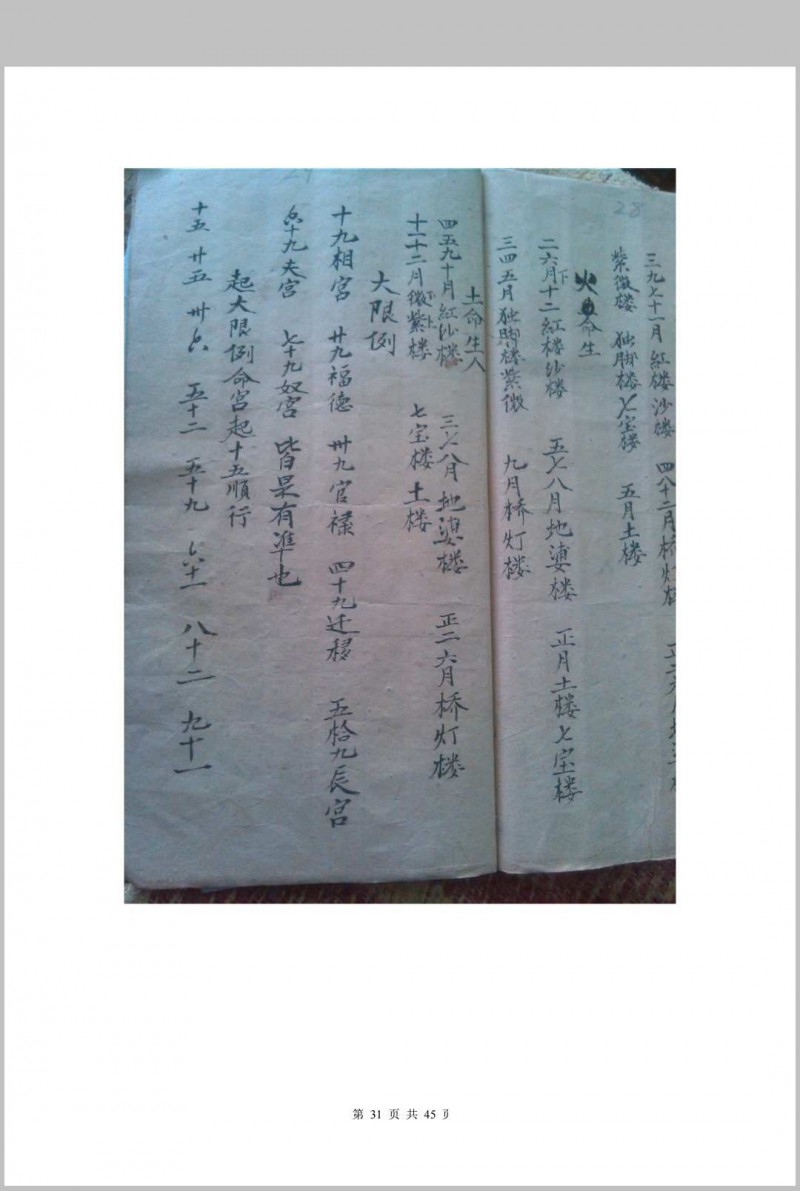 28
三九七十一月 紅楼沙楼 四八十二月桥灯楼
紫微楼 独脚楼七宝楼 五月土楼
火命生
二六月十二紅楼沙楼 五七八月地婆楼 正月土楼七宝楼
下
三四五月独脚楼紫微 九月桥灯楼
土命生人
四五九十月紅沙楼 三七八月地婆楼 正二六月桥灯楼
十一十二月微紫楼 七宝楼土楼
下上
大限例
十九相宫 廿九福德 卅九官禄 四十九迁移 五拾九辰宫
六十九夫宫 七十九奴宫 皆是有準也
起大限例命宫起十五順行
十五 廿五 卅六 五十二 五十九 六十一 八十二 九十一
第 31 页 共 45